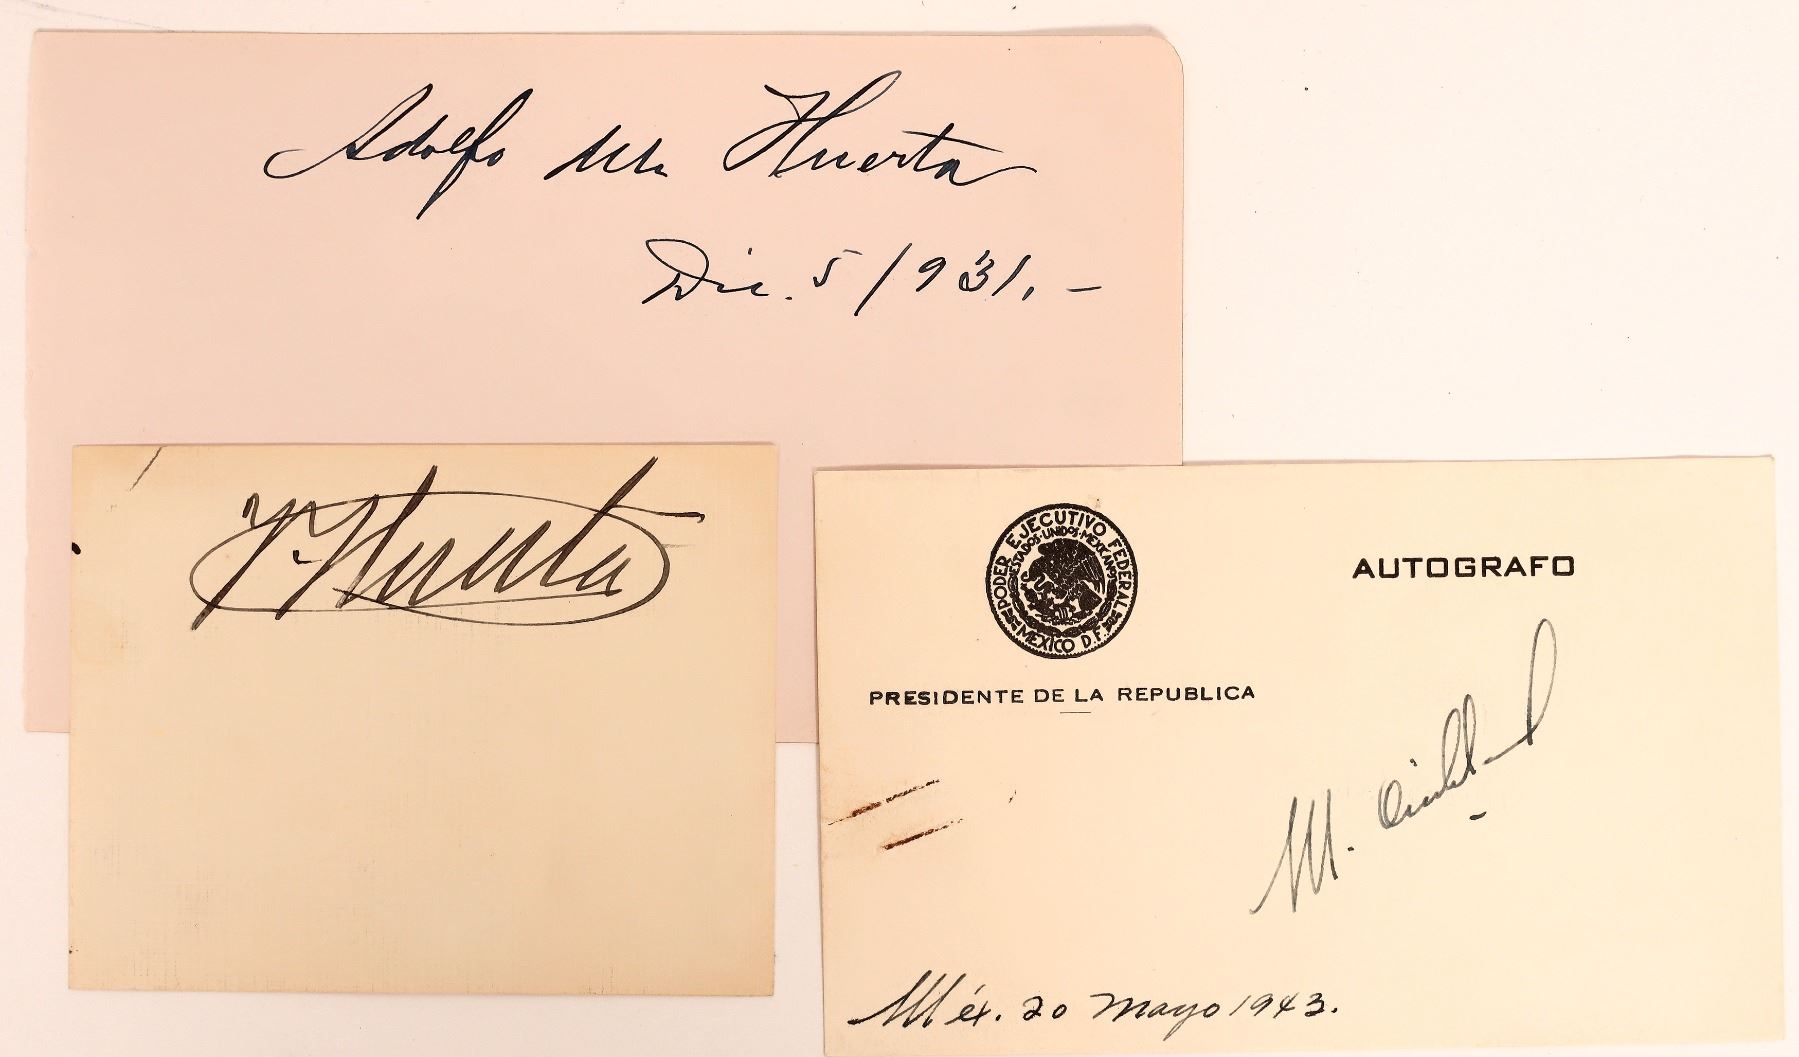 Adolfo de la Huerta
Dic. 5/931.-
V Huerta
PODER EJECUTIVO FEDERAL
ESTADOS·UNIDOS·MEXICANOS
MEXICO D.F.
PRESIDENTE DE LA REPUBLICA
AUTOGRAFO
M.
Méx. 20 Mayo 1943.